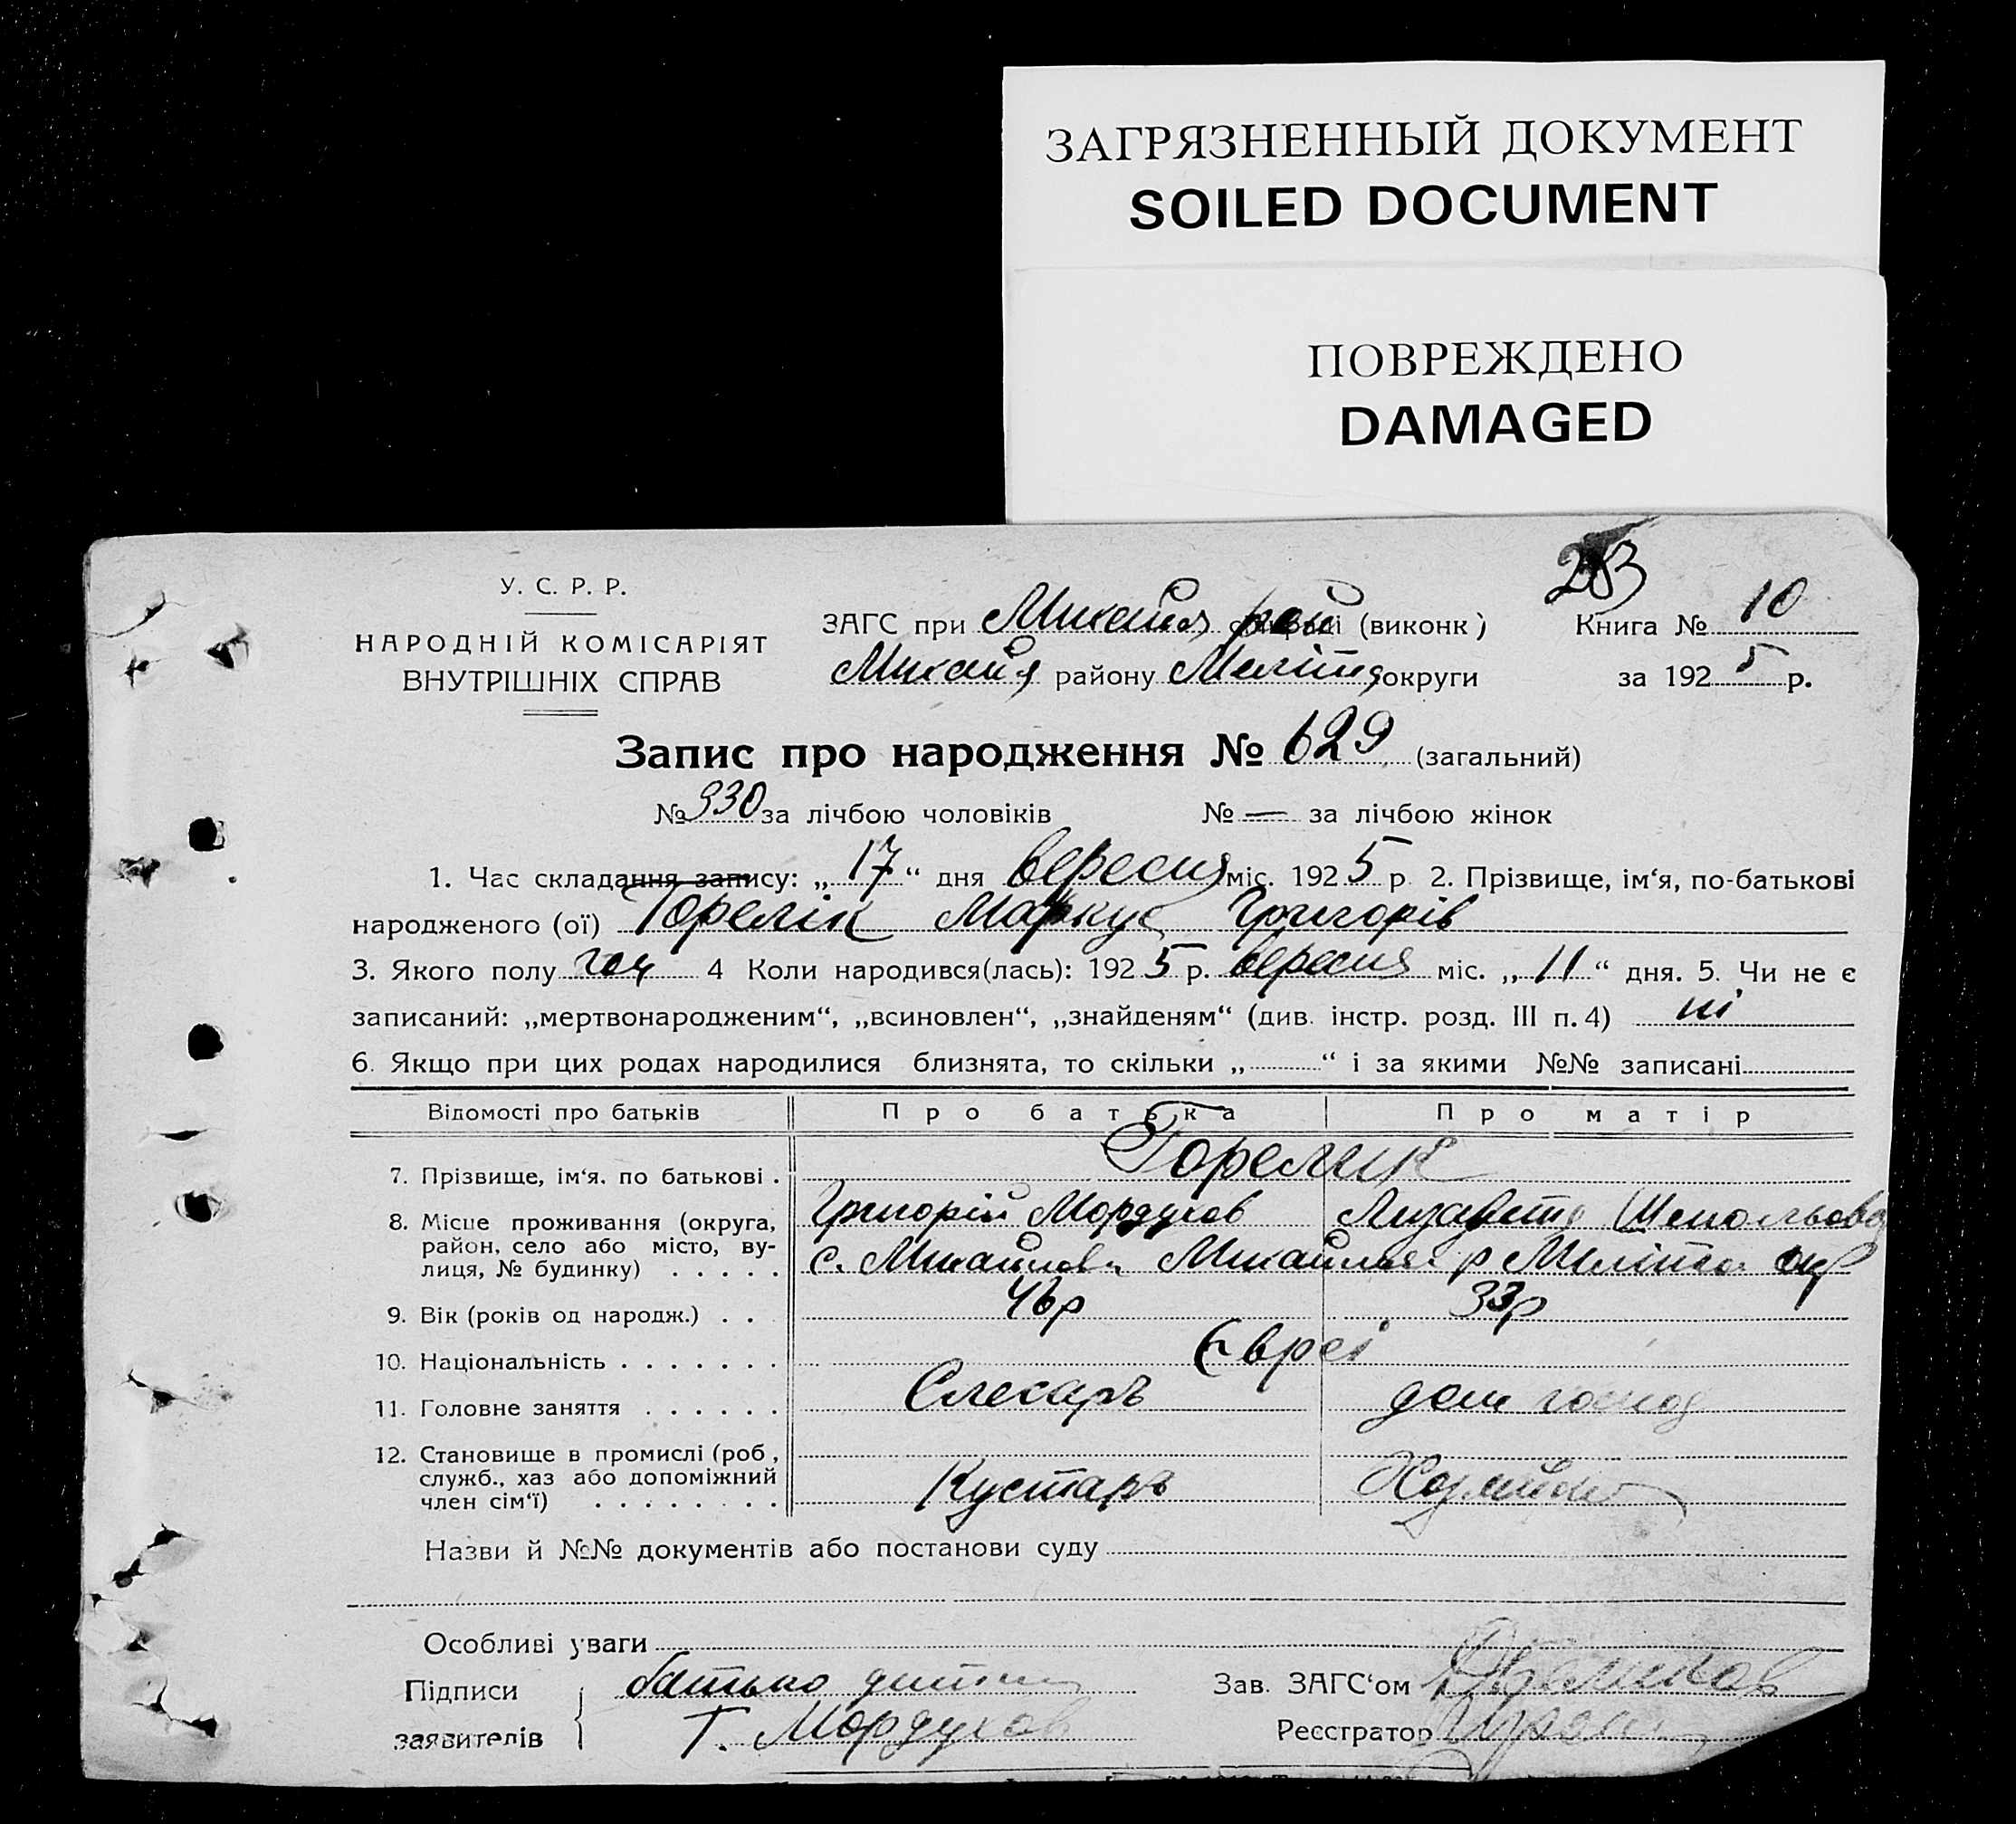 ЗАГРЯЗНЕННЫЙ ДОКУМЕНТ
SOILED DOCUMENT
ПОВРЕЖДЕНО
DAMAGED
У. С. Р. Р.
НАРОДНІЙ КОМІСАРІЯТ
ВНУТРІШНІХ СПРАВ
ЗАГС при Михайл рай (виконк)
Михайл району Меліт округи
Книга № 10
за 1925 р.
Запис про народження № 629 (загальний)
№ 330 за лічбою чоловіків № — за лічбою жінок
1. Час складання запису: „17“ дня вересня міс. 1925 р 2. Прізвище, ім‘я, по-батькові
народженого (ої) Горелік Маркус Григорів
3. Якого полу чол 4 Коли народився(лась): 1925 р. вересня міс. „11“ дня. 5. Чи не є
записаний: „мертвонародженим“, „всиновлен“, „знайденям“ (див. інстр. розд. III п. 4) ні
6. Якщо при цих родах народилися близнята, то скільки „ “ і за якими №№ записані
Відомості про батьків Про батька Про матір
7. Прізвище, ім‘я. по батькові . Горелик
Григорій Мордухов Лизавета
8. Місце проживання (округа, район, село або місто, вулиця, № будинку) . . . . . с. Михайловка Михайл р Меліто окр
9. Вік (років од народж.) . . 46р 33р
10. Національність . . . . . . . Євреі
11. Головне заняття . . . . . . Слесарь дом господ
12. Становище в промислі (роб, служб., хаз або допоміжний член сім‘ї) . . . . . . . . Кустарь
Назви й №№ документів або постанови суду
Особливі уваги
Підписи заявителів батько дитини
Г. Мордухов
Зав. ЗАГС‘ом
Реєстратор